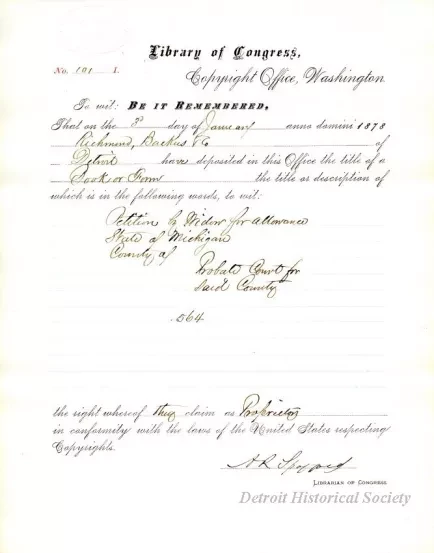 Library of Congress,
No. 191 I.
Copyright Office, Washington.
To wit: BE IT REMEMBERED,
That on the 3d day of January anno domini 1878
Richmond, Backus & Co of
Detroit have deposited in this Office the title of a
Book or Form the title or description of
which is in the following words, to wit:
Petition by Widow for allowance
State of Michigan
County of
Probate Court for
said County
564
the right whereof they claim as Proprietors
in conformity with the laws of the United States respecting
Copyrights.
A R Spofford
LIBRARIAN OF CONGRESS
Detroit Historical Society